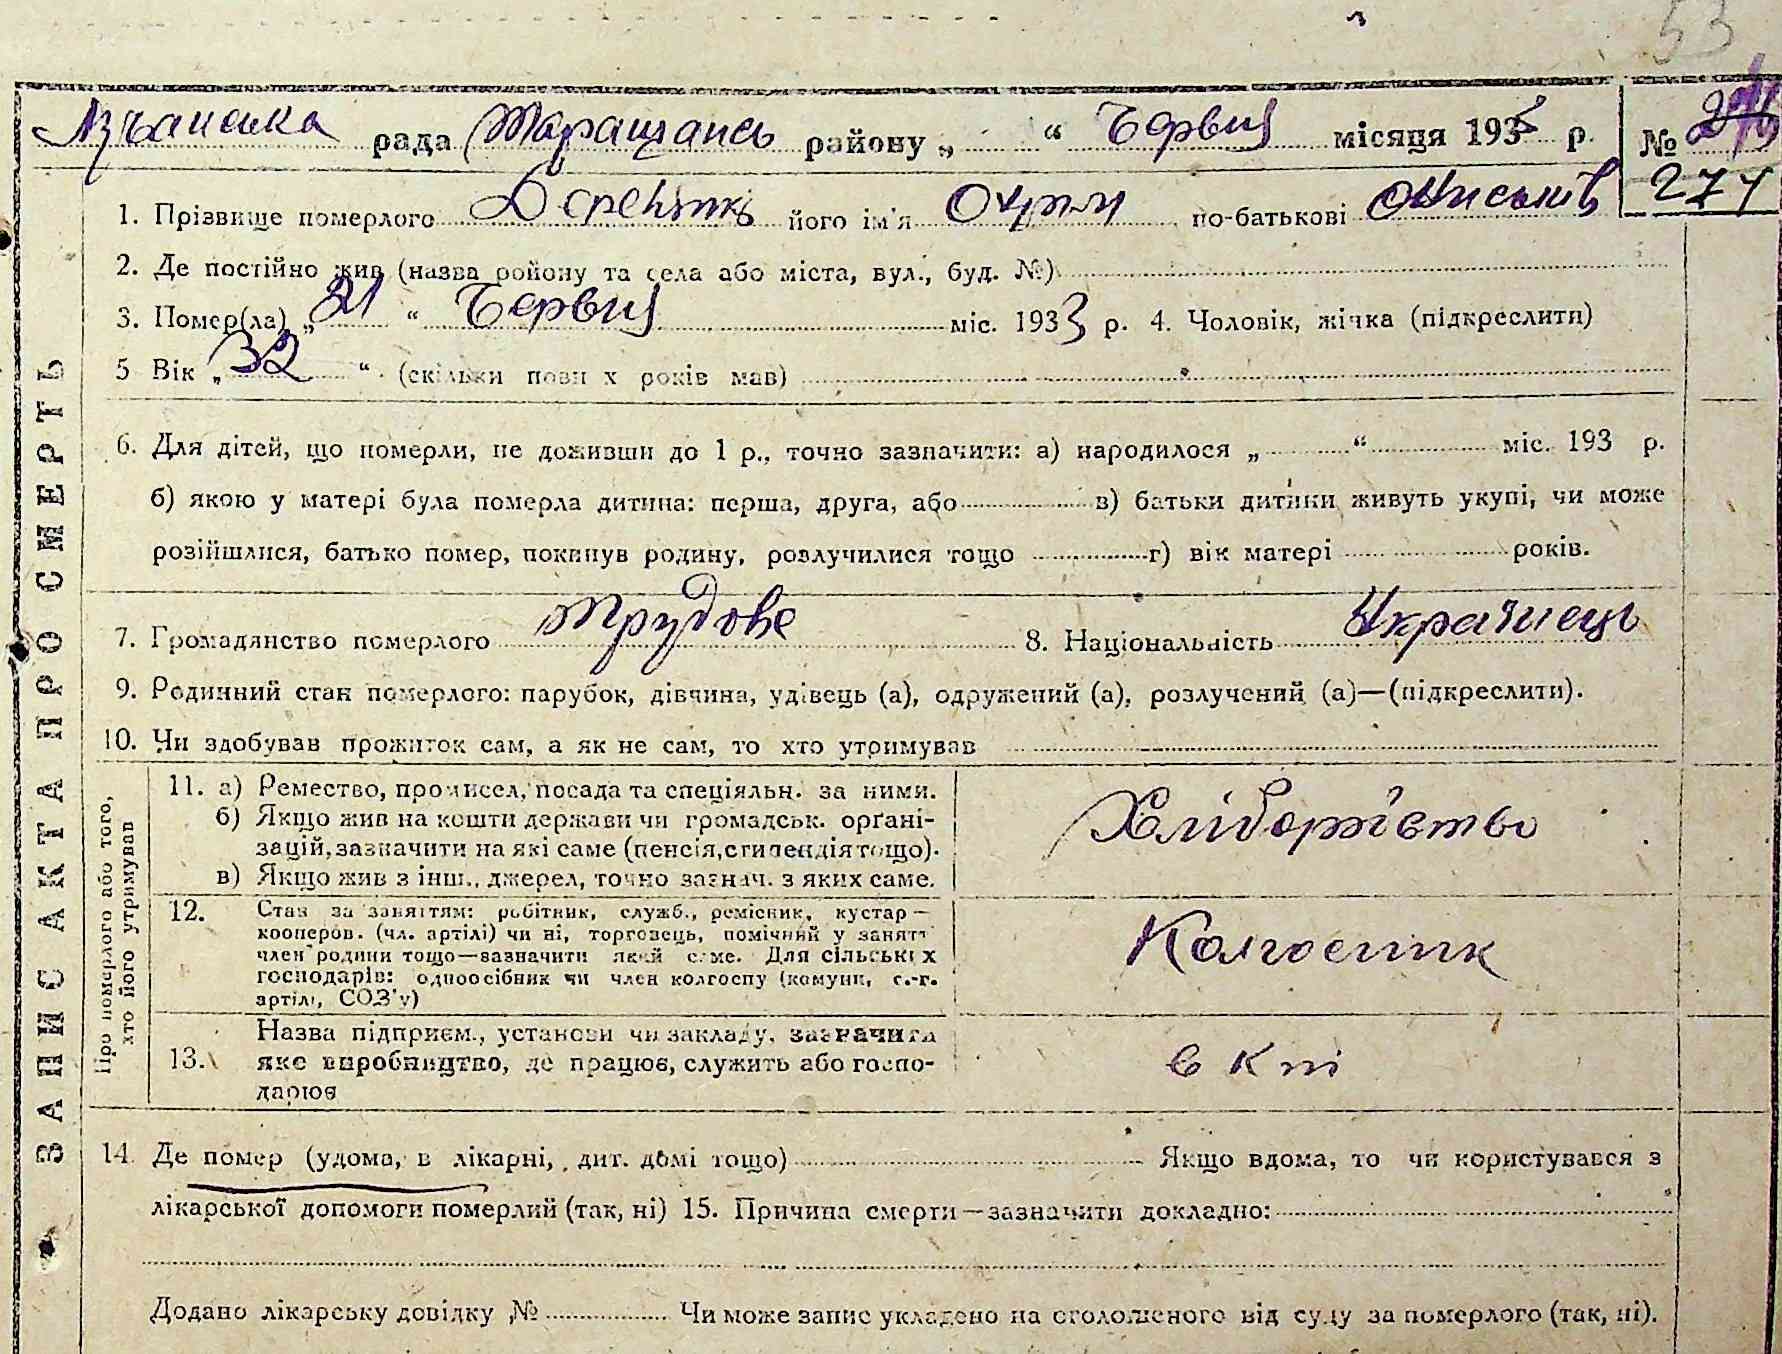 53
Лучанська рада Таращансь району „ “ Червня місяця 1933 р. №
274
1. Прізвище померлого його ім'я по-батькові
2. Де постійно жив (назва району та села або міста, вул., буд. №)
3. Помер(ла) „21“ Червня міс. 1933 р. 4. Чоловік, жінка (підкреслити)
5 Вік „32“ (скільки повних років мав)
6. Для дітей, що померли, не доживши до 1 р., точно зазначити: а) народилося „ “ міс. 193 р.
б) якою у матері була померла дитина: перша, друга, або в) батьки дитини живуть укупі, чи може
розійшлися, батько помер, покинув родину, розлучилися тощо г) вік матері років.
7. Громадянство померлого трудове 8. Національність Українець
9. Родинний стан померлого: парубок, дівчина, удівець (а), одружений (а), розлучений (а)—(підкреслити).
10. Чи здобував прожиток сам, а як не сам, то хто утримував
ЗАПИС АКТА ПРО СМЕРТЬ
Про померлого або того, хто його утримував
11. а) Ремество, промисел, посада та спеціяльн. за ними.
б) Якщо жив на кошти держави чи громадськ. органі-
зацій, зазначити на які саме (пенсія, стипендія тощо).
в) Якщо жив з інш. джерел, точно зазнач. з яких саме.
Хліборобство
12. Стан за заняттям: робітник, служб., ремісник, кустар—
кооперов. (чл. артілі) чи ні, торговець, помічний у занятт
член родини тощо—зазначити який саме. Для сільських
господарів: одноосібник чи член колгоспу (комуни, с.-г.
артілі, СОЗ'у)
Колгоспник
13. Назва підприєм., установи чи закладу, зазначити
яке виробництво, де працює, служить або госпо-
дарює
14. Де помер (удома, в лікарні, дит. домі тощо) Якщо вдома, то чи користувався з
лікарської допомоги померлий (так, ні) 15. Причина смерти—зазначити докладно:
Додано лікарську довідку № Чи може запис укладено на оголошеного від суду за померлого (так, ні).